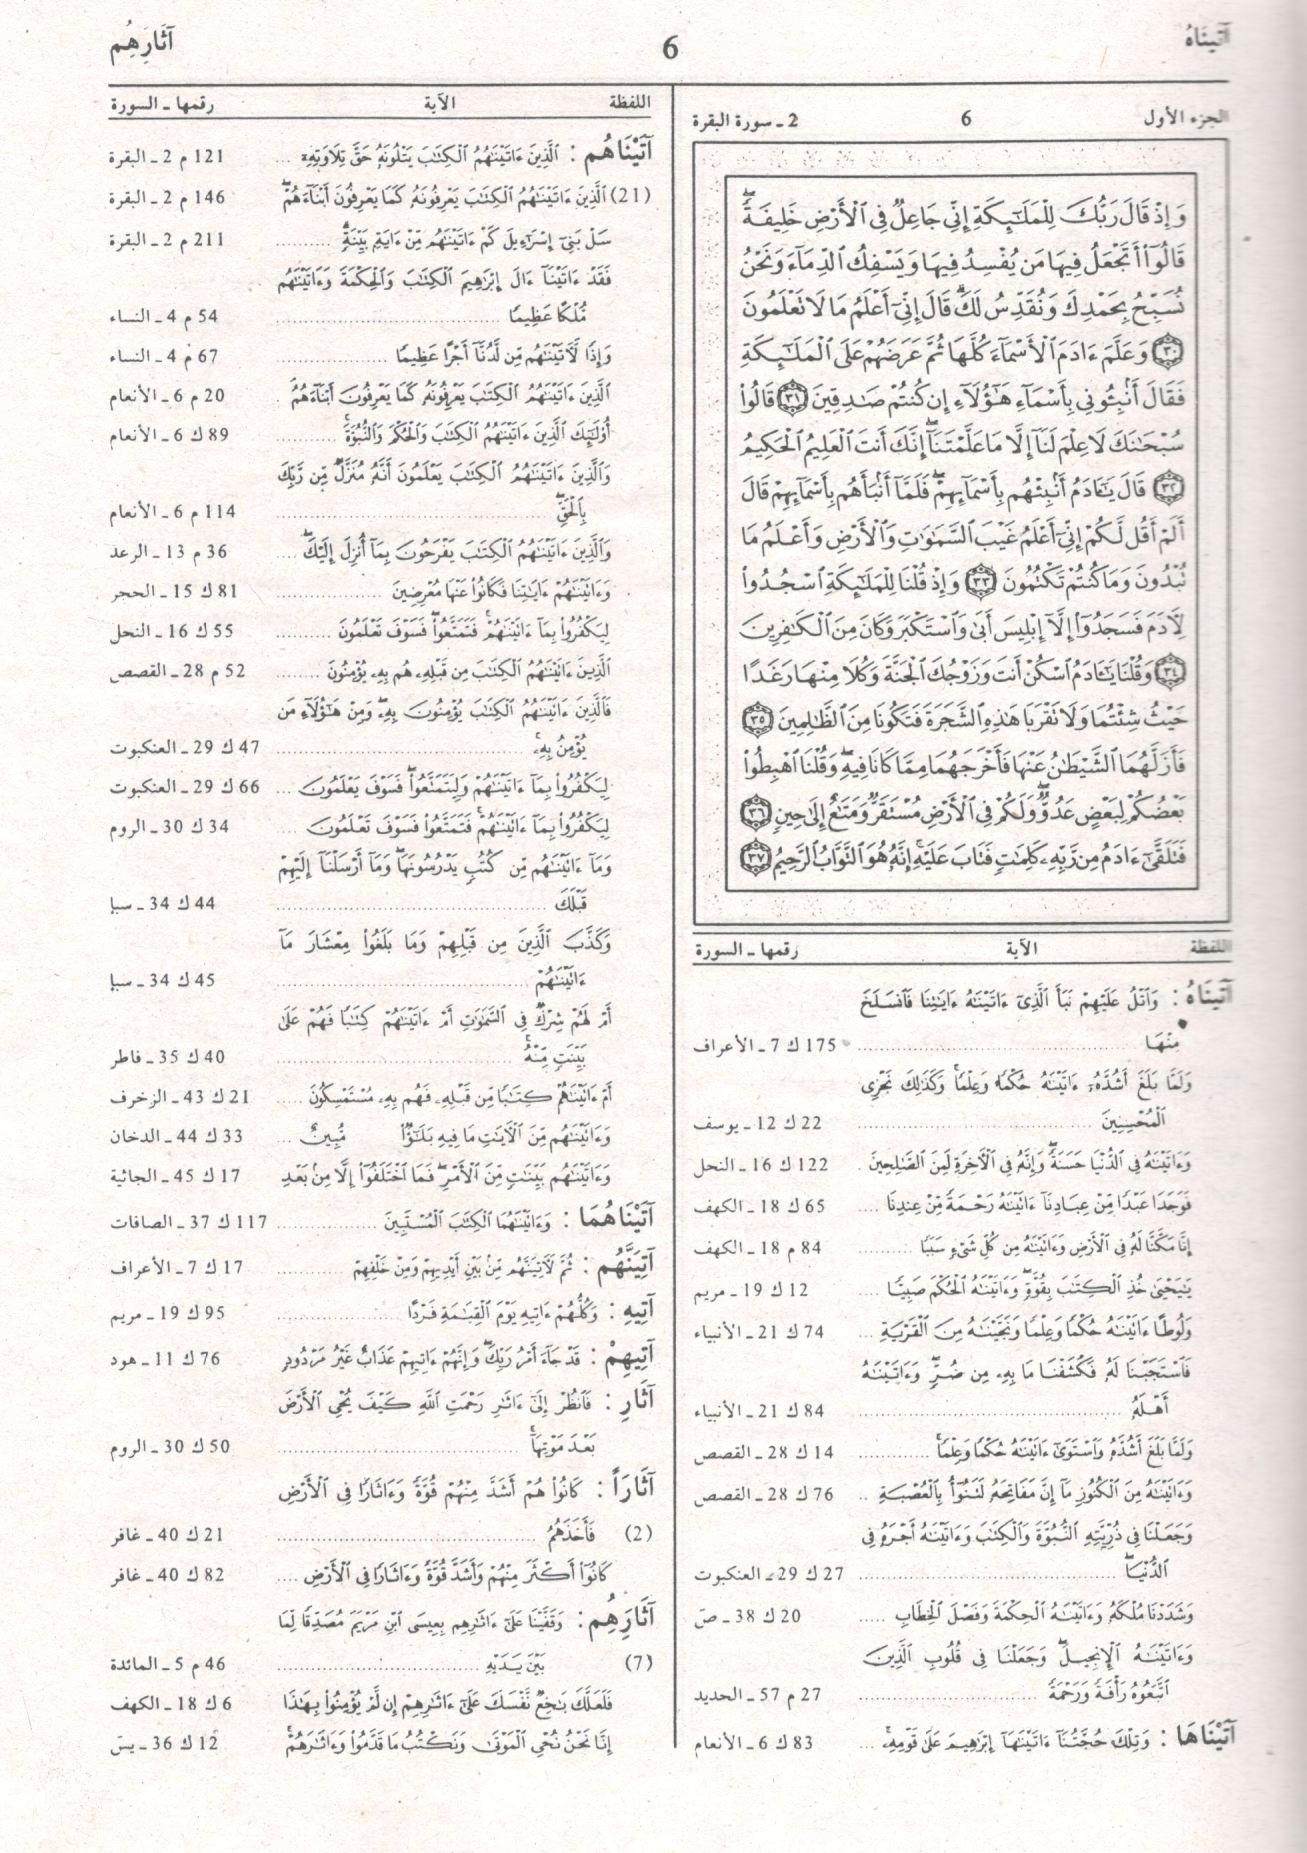 آتيناهُ
6
آثَارِهُم
الجزء الأول
6
2 ـ سورة البقرة
وَإِذْ قَالَ رَبُّكَ لِلْمَلَٰٓئِكَةِ إِنِّي جَاعِلٌ فِي ٱلْأَرْضِ خَلِيفَةً ۖ
قَالُوٓا۟ أَتَجْعَلُ فِيهَا مَن يُفْسِدُ فِيهَا وَيَسْفِكُ ٱلدِّمَآءَ وَنَحْنُ
نُسَبِّحُ بِحَمْدِكَ وَنُقَدِّسُ لَكَ ۖ قَالَ إِنِّيٓ أَعْلَمُ مَا لَا تَعْلَمُونَ
﴿٣٠﴾ وَعَلَّمَ ءَادَمَ ٱلْأَسْمَآءَ كُلَّهَا ثُمَّ عَرَضَهُمْ عَلَى ٱلْمَلَٰٓئِكَةِ
فَقَالَ أَنۢبِـُٔونِي بِأَسْمَآءِ هَٰٓؤُلَآءِ إِن كُنتُمْ صَٰدِقِينَ ﴿٣١﴾ قَالُوا۟
سُبْحَٰنَكَ لَا عِلْمَ لَنَآ إِلَّا مَا عَلَّمْتَنَآ ۖ إِنَّكَ أَنتَ ٱلْعَلِيمُ ٱلْحَكِيمُ
﴿٣٢﴾ قَالَ يَٰٓـَٔادَمُ أَنۢبِئْهُم بِأَسْمَآئِهِمْ ۖ فَلَمَّآ أَنۢبَأَهُم بِأَسْمَآئِهِمْ قَالَ
أَلَمْ أَقُل لَّكُمْ إِنِّيٓ أَعْلَمُ غَيْبَ ٱلسَّمَٰوَٰتِ وَٱلْأَرْضِ وَأَعْلَمُ مَا
تُبْدُونَ وَمَا كُنتُمْ تَكْتُمُونَ ﴿٣٣﴾ وَإِذْ قُلْنَا لِلْمَلَٰٓئِكَةِ ٱسْجُدُوا۟
لِـَٔادَمَ فَسَجَدُوٓا۟ إِلَّآ إِبْلِيسَ أَبَىٰ وَٱسْتَكْبَرَ وَكَانَ مِنَ ٱلْكَٰفِرِينَ
﴿٣٤﴾ وَقُلْنَا يَٰٓـَٔادَمُ ٱسْكُنْ أَنتَ وَزَوْجُكَ ٱلْجَنَّةَ وَكُلَا مِنْهَا رَغَدًا
حَيْثُ شِئْتُمَا وَلَا تَقْرَبَا هَٰذِهِ ٱلشَّجَرَةَ فَتَكُونَا مِنَ ٱلظَّٰلِمِينَ ﴿٣٥﴾
فَأَزَلَّهُمَا ٱلشَّيْطَٰنُ عَنْهَا فَأَخْرَجَهُمَا مِمَّا كَانَا فِيهِ ۖ وَقُلْنَا ٱهْبِطُوا۟
بَعْضُكُمْ لِبَعْضٍ عَدُوٌّ ۖ وَلَكُمْ فِي ٱلْأَرْضِ مُسْتَقَرٌّ وَمَتَٰعٌ إِلَىٰ حِينٍ ﴿٣٦﴾
فَتَلَقَّىٰٓ ءَادَمُ مِن رَّبِّهِۦ كَلِمَٰتٍ فَتَابَ عَلَيْهِ ۚ إِنَّهُۥ هُوَ ٱلتَّوَّابُ ٱلرَّحِيمُ ﴿٣٧﴾
اللفظة الآية رقمها ـ السورة
آتيناهُ : وَٱتْلُ عَلَيْهِمْ نَبَأَ ٱلَّذِيٓ ءَاتَيْنَٰهُ ءَايَٰتِنَا فَٱنسَلَخَ
مِنْهَا ........ 175 ك 7 ـ الأعراف
وَلَمَّا بَلَغَ أَشُدَّهُۥٓ ءَاتَيْنَٰهُ حُكْمًا وَعِلْمًا ۚ وَكَذَٰلِكَ نَجْزِي
ٱلْمُحْسِنِينَ ........ 22 ك 12 ـ يوسف
وَءَاتَيْنَٰهُ فِي ٱلدُّنْيَا حَسَنَةً ۖ وَإِنَّهُۥ فِي ٱلْأَخِرَةِ لَمِنَ ٱلصَّٰلِحِينَ . 122 ك 16 ـ النحل
فَوَجَدَا عَبْدًا مِّنْ عِبَادِنَآ ءَاتَيْنَٰهُ رَحْمَةً مِّنْ عِندِنَا ..... 65 ك 18 ـ الكهف
إِنَّا مَكَّنَّا لَهُۥ فِي ٱلْأَرْضِ وَءَاتَيْنَٰهُ مِن كُلِّ شَيْءٍ سَبَبًا ........ 84 م 18 ـ الكهف
يَٰيَحْيَىٰ خُذِ ٱلْكِتَٰبَ بِقُوَّةٍ ۖ وَءَاتَيْنَٰهُ ٱلْحُكْمَ صَبِيًّا ..... 12 ك 19 ـ مريم
وَلُوطًا ءَاتَيْنَٰهُ حُكْمًا وَعِلْمًا وَنَجَّيْنَٰهُ مِنَ ٱلْقَرْيَةِ ... 74 ك 21 ـ الأنبياء
فَٱسْتَجَبْنَا لَهُۥ فَكَشَفْنَا مَا بِهِۦ مِن ضُرٍّ ۖ وَءَاتَيْنَٰهُ
أَهْلَهُۥ ........ 84 ك 21 ـ الأنبياء
وَلَمَّا بَلَغَ أَشُدَّهُۥ وَٱسْتَوَىٰٓ ءَاتَيْنَٰهُ حُكْمًا وَعِلْمًا ۚ ........ 14 ك 28 ـ القصص
وَءَاتَيْنَٰهُ مِنَ ٱلْكُنُوزِ مَآ إِنَّ مَفَاتِحَهُۥ لَتَنُوٓأُ بِٱلْعُصْبَةِ .. 76 ك 28 ـ القصص
وَجَعَلْنَا فِي ذُرِّيَّتِهِ ٱلنُّبُوَّةَ وَٱلْكِتَٰبَ وَءَاتَيْنَٰهُ أَجْرَهُۥ فِي
ٱلدُّنْيَا ۖ ........ 27 ك 29 ـ العنكبوت
وَشَدَدْنَا مُلْكَهُۥ وَءَاتَيْنَٰهُ ٱلْحِكْمَةَ وَفَصْلَ ٱلْخِطَابِ ..... 20 ك 38 ـ صَ
وَءَاتَيْنَٰهُ ٱلْإِنجِيلَ ۖ وَجَعَلْنَا فِي قُلُوبِ ٱلَّذِينَ
ٱتَّبَعُوهُ رَأْفَةً وَرَحْمَةً ........ 27 م 57 ـ الحديد
آتَيْنَاهَا : وَتِلْكَ حُجَّتُنَآ ءَاتَيْنَٰهَآ إِبْرَٰهِيمَ عَلَىٰ قَوْمِهِۦ ۚ ... 83 ك 6 ـ الأنعام
اللفظة الآية رقمها ـ السورة
آتَيْنَاهُم : ٱلَّذِينَ ءَاتَيْنَٰهُمُ ٱلْكِتَٰبَ يَتْلُونَهُۥ حَقَّ تِلَاوَتِهِۦٓ ... 121 م 2 ـ البقرة
(21) ٱلَّذِينَ ءَاتَيْنَٰهُمُ ٱلْكِتَٰبَ يَعْرِفُونَهُۥ كَمَا يَعْرِفُونَ أَبْنَآءَهُمْ ۖ 146 م 2 ـ البقرة
سَلْ بَنِيٓ إِسْرَٰٓءِيلَ كَمْ ءَاتَيْنَٰهُم مِّنْ ءَايَةٍۭ بَيِّنَةٍ ۗ ........ 211 م 2 ـ البقرة
فَقَدْ ءَاتَيْنَآ ءَالَ إِبْرَٰهِيمَ ٱلْكِتَٰبَ وَٱلْحِكْمَةَ وَءَاتَيْنَٰهُم
مُّلْكًا عَظِيمًا ........ 54 م 4 ـ النساء
وَإِذًا لَّءَاتَيْنَٰهُم مِّن لَّدُنَّآ أَجْرًا عَظِيمًا ........ 67 م 4 ـ النساء
ٱلَّذِينَ ءَاتَيْنَٰهُمُ ٱلْكِتَٰبَ يَعْرِفُونَهُۥ كَمَا يَعْرِفُونَ أَبْنَآءَهُمُ . 20 م 6 ـ الأنعام
أُو۟لَٰٓئِكَ ٱلَّذِينَ ءَاتَيْنَٰهُمُ ٱلْكِتَٰبَ وَٱلْحُكْمَ وَٱلنُّبُوَّةَ ۚ ........ 89 ك 6 ـ الأنعام
وَٱلَّذِينَ ءَاتَيْنَٰهُمُ ٱلْكِتَٰبَ يَعْلَمُونَ أَنَّهُۥ مُنَزَّلٌ مِّن رَّبِّكَ
بِٱلْحَقِّ ۖ ........ 114 م 6 ـ الأنعام
وَٱلَّذِينَ ءَاتَيْنَٰهُمُ ٱلْكِتَٰبَ يَفْرَحُونَ بِمَآ أُنزِلَ إِلَيْكَ ۖ .... 36 م 13 ـ الرعد
وَءَاتَيْنَٰهُمْ ءَايَٰتِنَا فَكَانُوا۟ عَنْهَا مُعْرِضِينَ ........ 81 ك 15 ـ الحجر
لِيَكْفُرُوا۟ بِمَآ ءَاتَيْنَٰهُمْ ۚ فَتَمَتَّعُوا۟ ۖ فَسَوْفَ تَعْلَمُونَ ........ 55 ك 16 ـ النحل
ٱلَّذِينَ ءَاتَيْنَٰهُمُ ٱلْكِتَٰبَ مِن قَبْلِهِۦ هُم بِهِۦ يُؤْمِنُونَ ........ 52 م 28 ـ القصص
فَٱلَّذِينَ ءَاتَيْنَٰهُمُ ٱلْكِتَٰبَ يُؤْمِنُونَ بِهِۦ ۖ وَمِنْ هَٰٓؤُلَآءِ مَن
يُؤْمِنُ بِهِۦ ۚ ........ 47 ك 29 ـ العنكبوت
لِيَكْفُرُوا۟ بِمَآ ءَاتَيْنَٰهُمْ وَلِيَتَمَتَّعُوا۟ ۖ فَسَوْفَ يَعْلَمُونَ ... 66 ك 29 ـ العنكبوت
لِيَكْفُرُوا۟ بِمَآ ءَاتَيْنَٰهُمْ ۚ فَتَمَتَّعُوا۟ فَسَوْفَ تَعْلَمُونَ .... 34 ك 30 ـ الروم
وَمَآ ءَاتَيْنَٰهُم مِّن كُتُبٍ يَدْرُسُونَهَا ۖ وَمَآ أَرْسَلْنَآ إِلَيْهِمْ
قَبْلَكَ ........ 44 ك 34 ـ سبإ
وَكَذَّبَ ٱلَّذِينَ مِن قَبْلِهِمْ وَمَا بَلَغُوا۟ مِعْشَارَ مَآ
ءَاتَيْنَٰهُمْ ........ 45 ك 34 ـ سبإ
أَمْ لَهُمْ شِرْكٌ فِي ٱلسَّمَٰوَٰتِ أَمْ ءَاتَيْنَٰهُمْ كِتَٰبًا فَهُمْ عَلَىٰ
بَيِّنَتٍ مِّنْهُ ۚ ........ 40 ك 35 ـ فاطر
أَمْ ءَاتَيْنَٰهُمْ كِتَٰبًا مِّن قَبْلِهِۦ فَهُم بِهِۦ مُسْتَمْسِكُونَ ..... 21 ك 43 ـ الزخرف
وَءَاتَيْنَٰهُم مِّنَ ٱلْأَيَٰتِ مَا فِيهِ بَلَٰٓؤٌا۟ مُّبِينٌ ... 33 ك 44 ـ الدخان
وَءَاتَيْنَٰهُم بَيِّنَٰتٍ مِّنَ ٱلْأَمْرِ ۖ فَمَا ٱخْتَلَفُوٓا۟ إِلَّا مِنۢ بَعْدِ 17 ك 45 ـ الجاثية
آتَيْنَاهُمَا : وَءَاتَيْنَٰهُمَا ٱلْكِتَٰبَ ٱلْمُسْتَبِينَ ........ 117 ك 37 ـ الصافات
آتِيَنَّهُم : ثُمَّ لَءَاتِيَنَّهُم مِّنۢ بَيْنِ أَيْدِيهِمْ وَمِنْ خَلْفِهِمْ ........ 17 ك 7 ـ الأعراف
آتِيهِ : وَكُلُّهُمْ ءَاتِيهِ يَوْمَ ٱلْقِيَٰمَةِ فَرْدًا ........ 95 ك 19 ـ مريم
آتِيهِمْ : قَدْ جَآءَ أَمْرُ رَبِّكَ ۖ وَإِنَّهُمْ ءَاتِيهِمْ عَذَابٌ غَيْرُ مَرْدُودٍ 76 ك 11 ـ هود
آثَارِ : فَٱنظُرْ إِلَىٰٓ ءَاثَٰرِ رَحْمَتِ ٱللَّهِ كَيْفَ يُحْيِ ٱلْأَرْضَ
بَعْدَ مَوْتِهَآ ۚ ........ 50 ك 30 ـ الروم
آثَاراً : كَانُوا۟ هُمْ أَشَدَّ مِنْهُمْ قُوَّةً وَءَاثَارًا فِي ٱلْأَرْضِ
(2) فَأَخَذَهُمُ ........ 21 ك 40 ـ غافر
كَانُوٓا۟ أَكْثَرَ مِنْهُمْ وَأَشَدَّ قُوَّةً وَءَاثَارًا فِي ٱلْأَرْضِ .... 82 ك 40 ـ غافر
آثَارِهُم : وَقَفَّيْنَا عَلَىٰٓ ءَاثَٰرِهِم بِعِيسَى ٱبْنِ مَرْيَمَ مُصَدِّقًا لِّمَا
(7) بَيْنَ يَدَيْهِ ........ 46 م 5 ـ المائدة
فَلَعَلَّكَ بَٰخِعٌ نَّفْسَكَ عَلَىٰٓ ءَاثَٰرِهِمْ إِن لَّمْ يُؤْمِنُوا۟ بِهَٰذَا 6 ك 18 ـ الكهف
إِنَّا نَحْنُ نُحْيِ ٱلْمَوْتَىٰ وَنَكْتُبُ مَا قَدَّمُوا۟ وَءَاثَٰرَهُمْ ۚ 12 ك 36 ـ يسَ